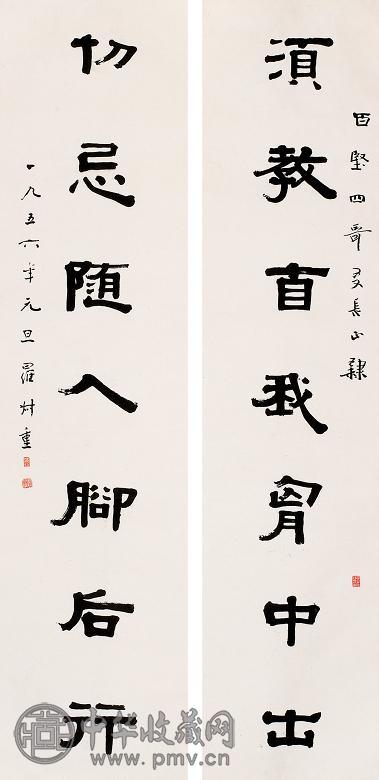 百堅四哥長正隸
須教自我胷中出
切忌随人腳后行
一九五六年元旦羅叔重
中华收藏网
www.pmv.cn